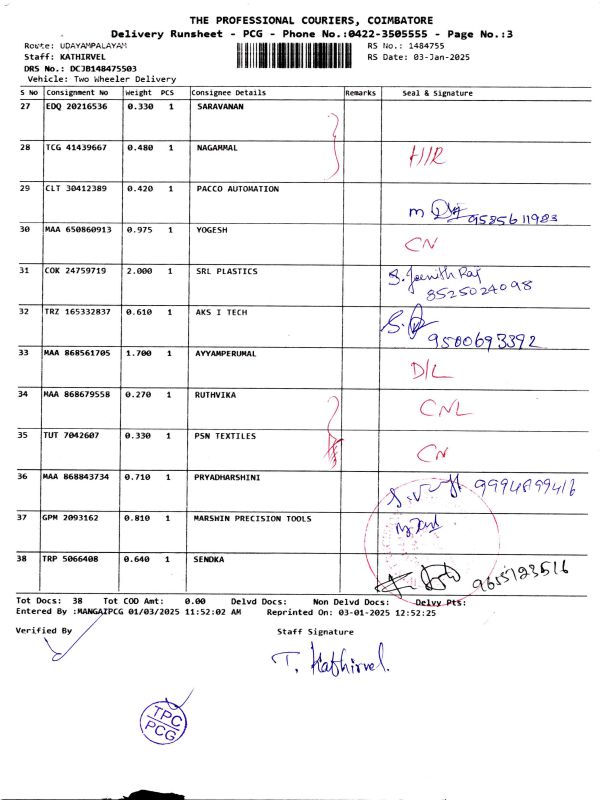 THE PROFESSIONAL COURIERS, COIMBATORE
Delivery Runsheet - PCG - Phone No.:0422-3505555 - Page No.:3
Route: UDAYAMPALAYAM RS No.: 1484755
Staff: KATHIRVEL RS Date: 03-Jan-2025
DRS No.: DCJB148475503
Vehicle: Two Wheeler Delivery
S No Consignment No Weight PCS Consignee Details Remarks Seal & Signature
27 EDQ 20216536 0.330 1 SARAVANAN
28 TCG 41439667 0.480 1 NAGAMMAL
29 CLT 30412389 0.420 1 PACCO AUTOMATION
m 9585611983
30 MAA 650860913 0.975 1 YOGESH
CN
31 COK 24759719 2.000 1 SRL PLASTICS S. Jeenith Raj
8525024098
32 TRZ 165332837 0.610 1 AKS I TECH
9500693392
33 MAA 868561705 1.700 1 AYYAMPERUMAL
D/L
34 MAA 868679558 0.270 1 RUTHVIKA
CNL
35 TUT 7042607 0.330 1 PSN TEXTILES
CN
36 MAA 868843734 0.710 1 PRYADHARSHINI
9994899416
37 GPM 2093162 0.810 1 MARSHIN PRECISION TOOLS
38 TRP 5066408 0.640 1 SENDKA
9655123516
Tot Docs: 38 Tot COD Amt: 0.00 Delvd Docs: Non Delvd Docs: Delvy Pts:
Entered By :MANGAIPCG 01/03/2025 11:52:02 AM Reprinted On: 03-01-2025 12:52:25
Verified By Staff Signature
T. Kathirvel.
TPC
PCG